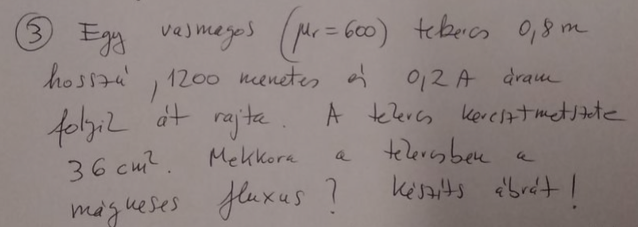 ③ Egy vasmagos (μr = 600) tekercs 0,8 m
hosszú, 1200 menetes és 0,2 A áram
folyik át rajta. A tekercs keresztmetszete
36 cm². Mekkora a tekercsben a
mágneses fluxus? Készíts ábrát!